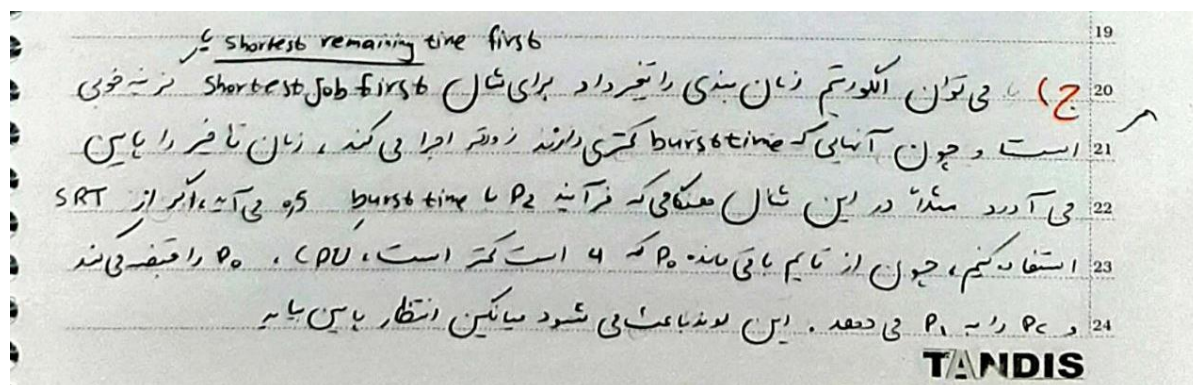 19
یا shortest remaining time first
20 ج) می توان الگوریتم زمان بندی را تغییر داد برای مثال Shortest Job first گزینه خوبی
21 است و چون آنهایی که burst time کمتری دارند زودتر اجرا می کند، زمان تاخیر را پایین
22 می آورد مثلاً در این مثال هنگامی که فرآیند P2 با burst time 0,5 می آید، اگر از SRT
23 استفاده کنیم، چون از تایم باقی مانده P0 که 4 است کمتر است، CPU، P0 را قبضه می کند
24 و را به P1 می دهد. این روند باعث می شود میانگین انتظار پایین بیاید
TANDIS